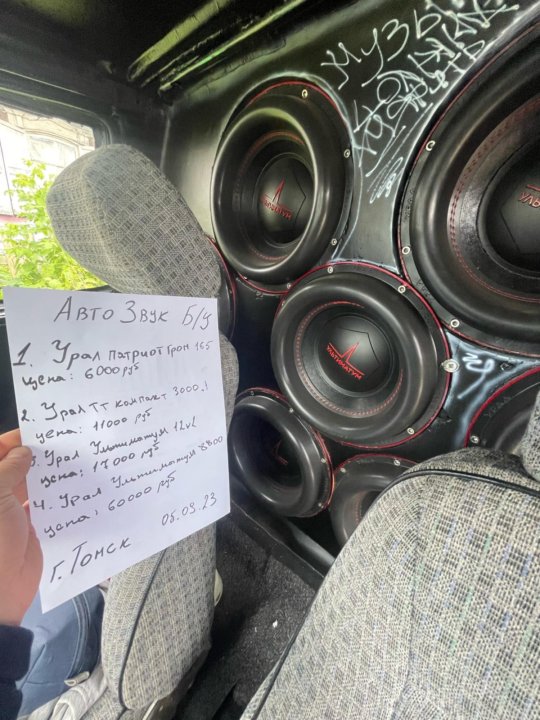 Авто Звук Б/У
1. Урал Патриот Грон 165
цена: 6000 руб
2. Урал ТТ компакт 3000.1
цена: 11000 руб
3. Урал Ультиматум 12v2
цена: 17000 руб
4. Урал Ультиматум 8800
цена: 60000 руб
06.09.23
г. Томск
УЛЬТИМАТУМ
УЛЬТИМАТУМ
МУЗЫ